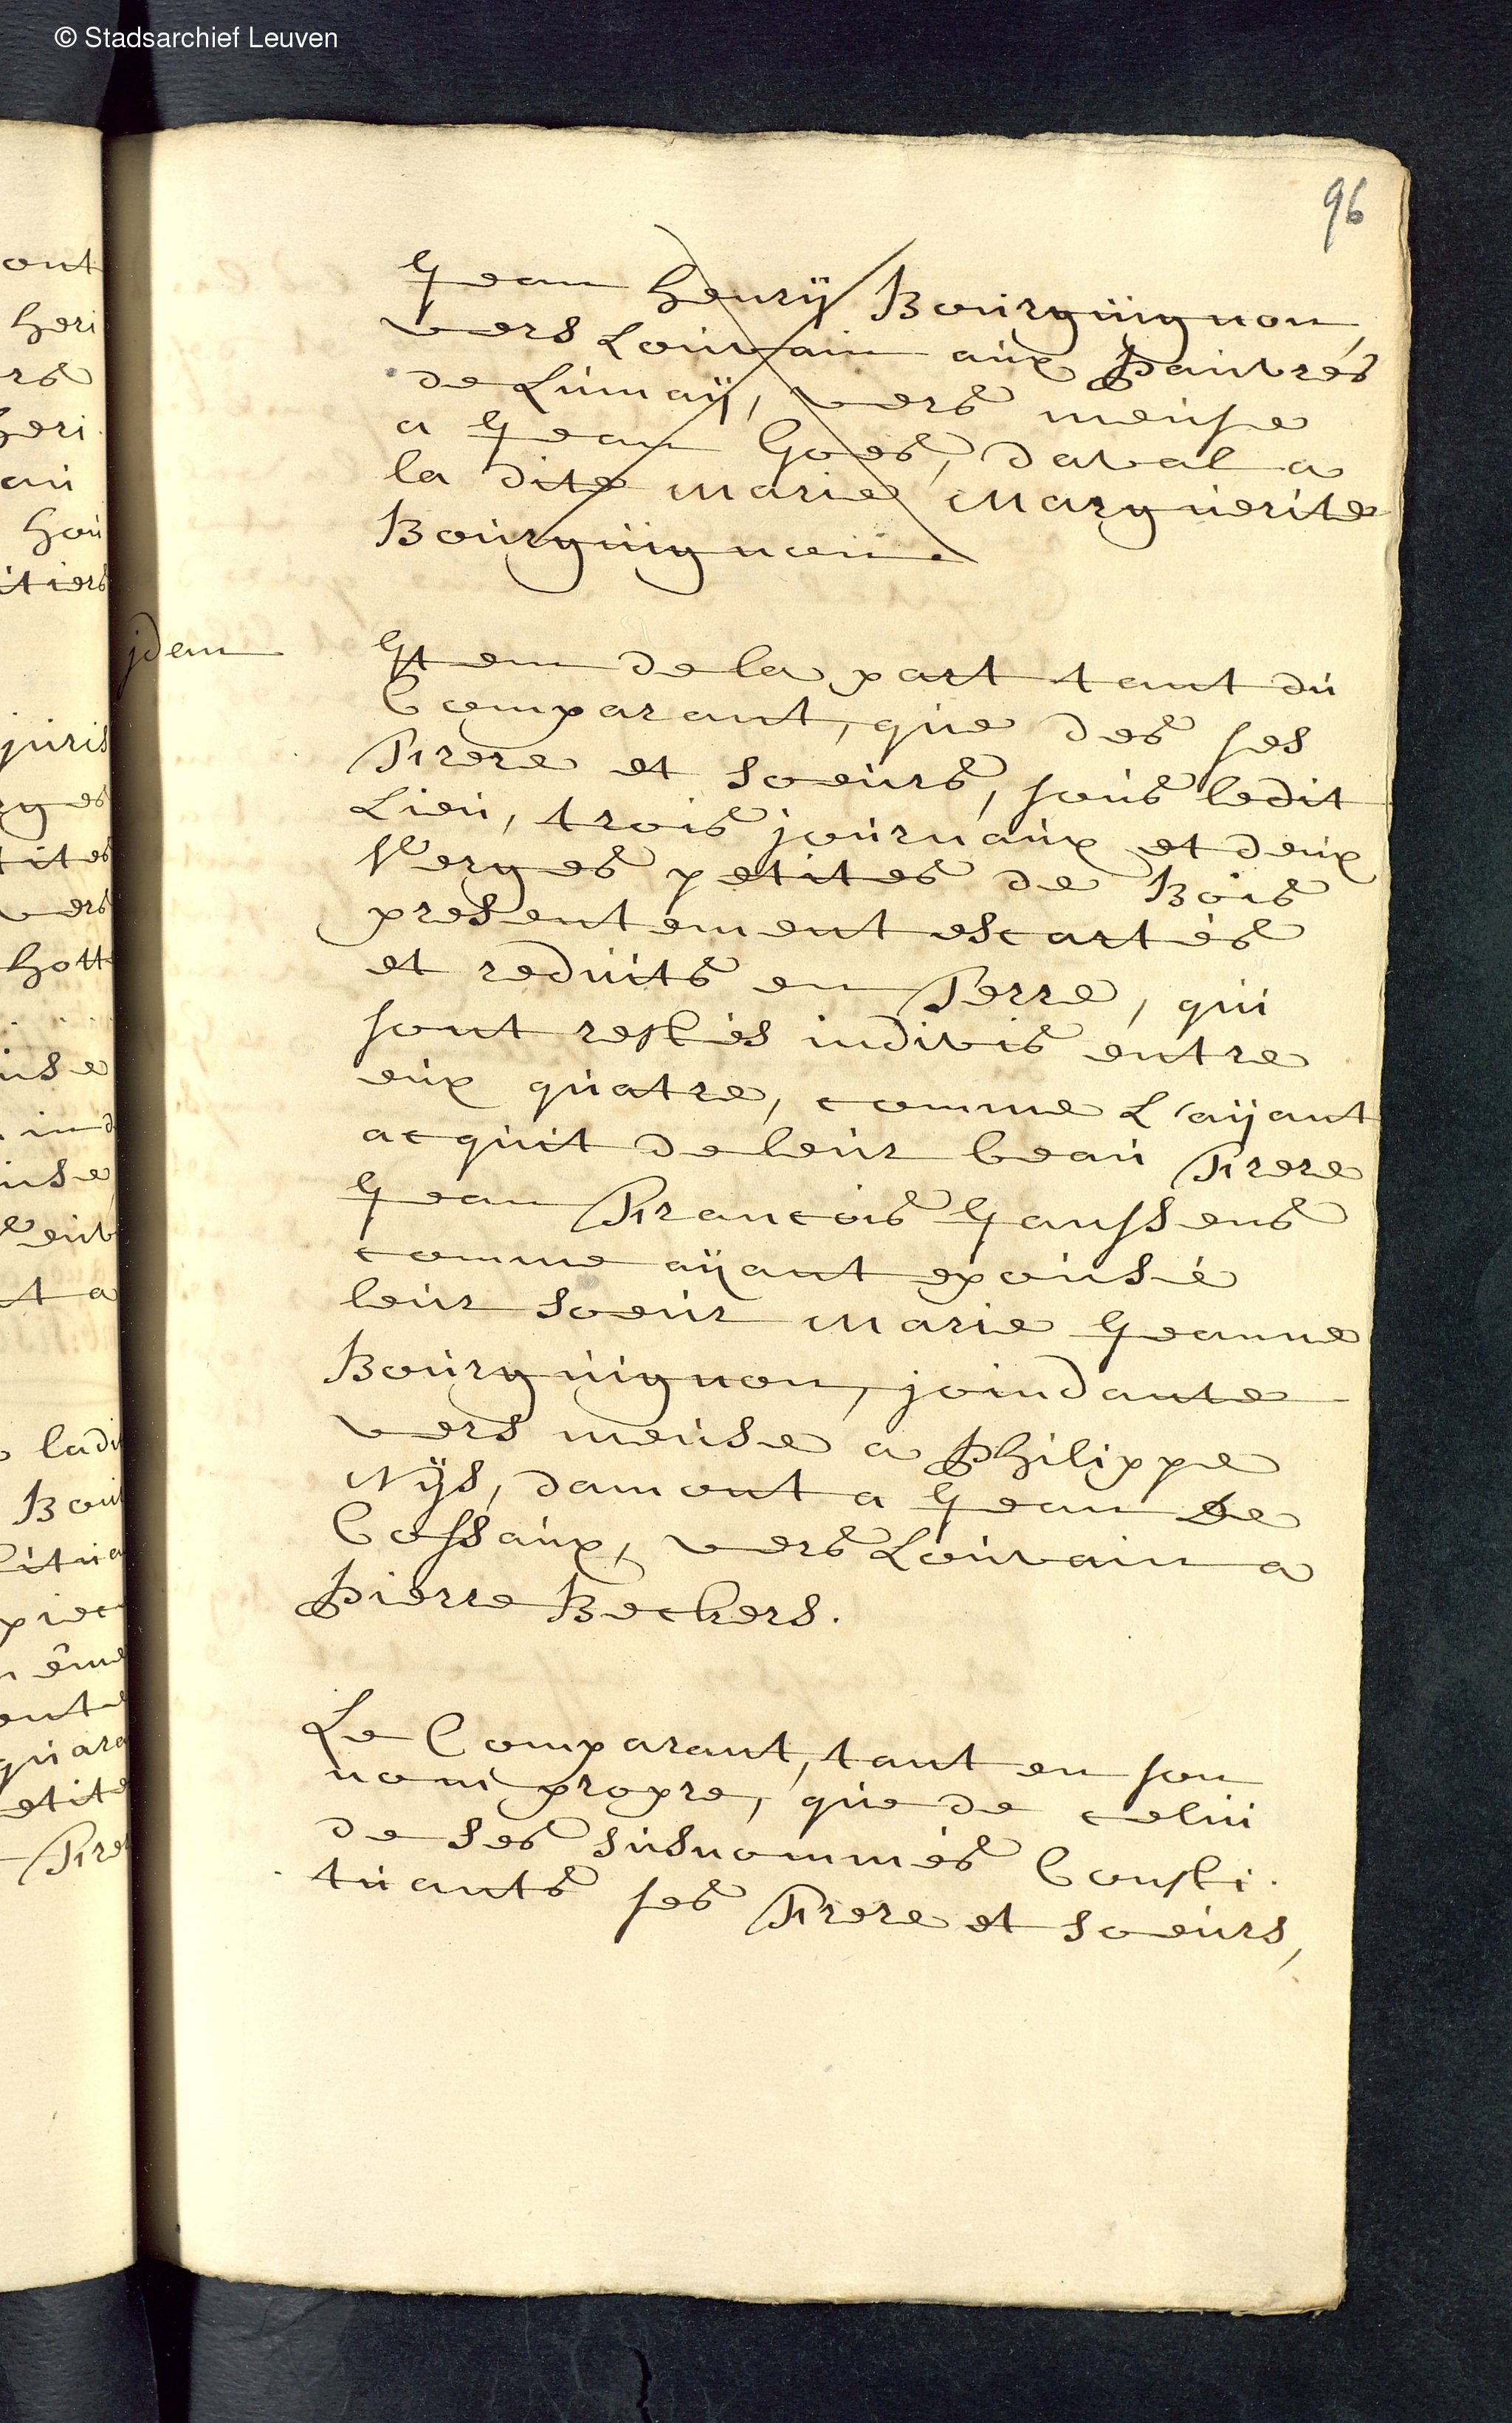 © Stadsarchief Leuven
96
Jean Henrÿ Bourguignon,
vers Louvain aux Pauvrés
de Lumaÿ, vers meuse
a Jean Goes, daval a
la dite Marie Marguerite
Bourguignon.
jdem
Item de la part tant du
Comparant, que des ses
Frere et soeurs, sous ledit
Lieu, trois journaux et deux
Verges petites de Bois
presentement escartés
et reduits en Terre, qui
sont restés indivis entre
eux quatre, comme L'aÿant
acquit de leur beau Frere
Jean Francois Janssens
comme aÿant epousé
leur soeur Marie Jeanne
Bourguignon, joindante
vers meuse a Philippe
Nÿs, damont a Jean De
Cossaux, vers Louvain a
Pierre Beckers.
Le Comparant, tant en son
nom propre, que de celui
de ses susnommés Consti.
tuants ses Frere et soeurs,
ont
heri
rs
heri.
hou
itiers
juris
rges
tites
vers
hott
use
ind
use
t a
ladi
Bou
piec
ente
quara
etite
Frer